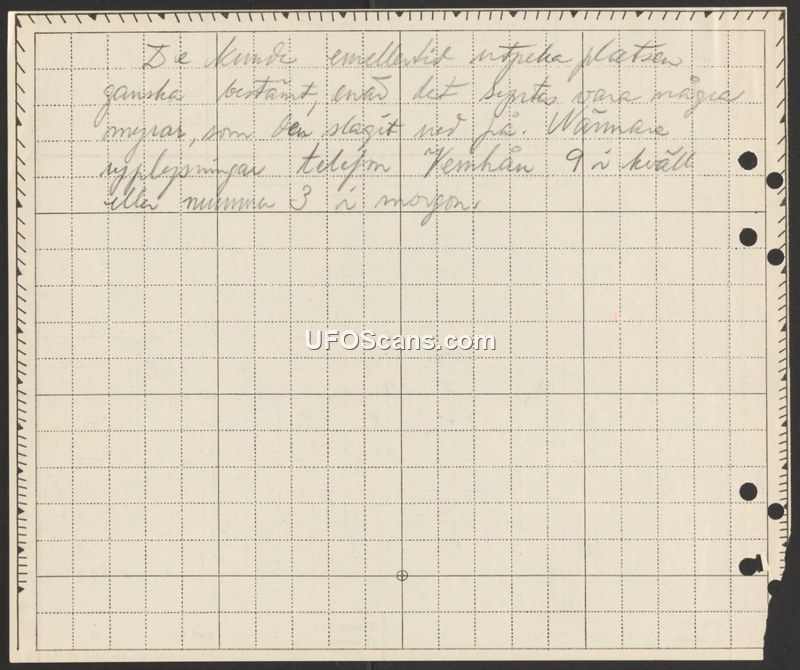 De kunde emellertid utpeka platsen
ganska bestämt, enär det syntes vara några
myrar, som den slagit ned på. Närmare
upplysningar telefon Kemhån 9 i kväll
eller nummer 3 i morgon.
UFOScans.com